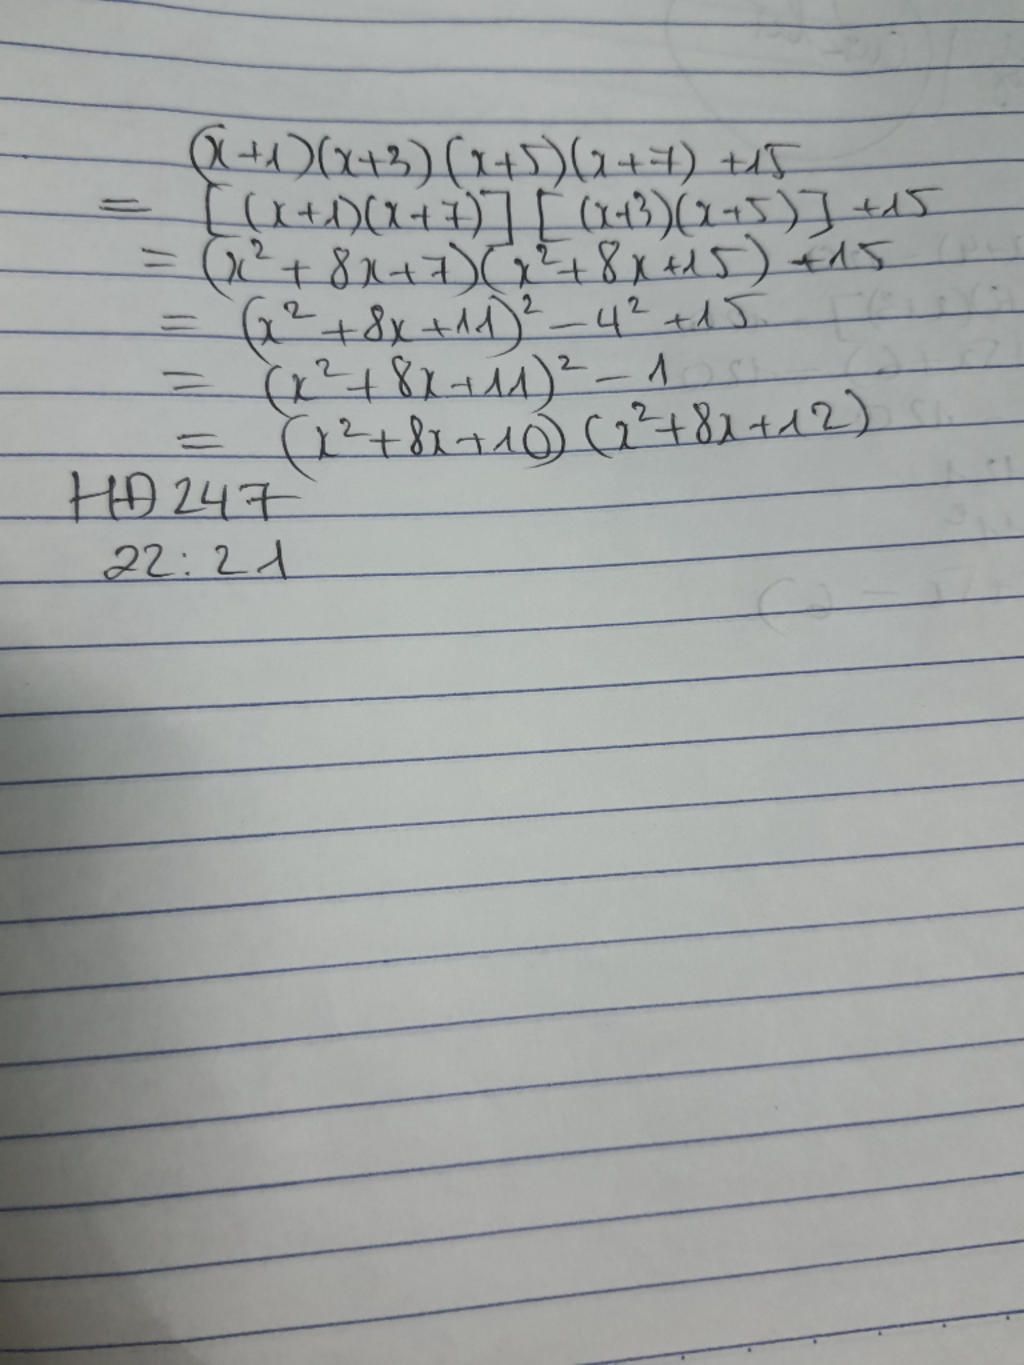 (x+1)(x+3)(x+5)(x+7) +15
= [(x+1)(x+7)] [(x+3)(x+5)] +15
= (x²+8x+7)(x²+8x+15) +15
= (x²+8x+11)² - 4² +15
= (x²+8x+11)² - 1
= (x²+8x+10)(x²+8x+12)
HD247
22:21